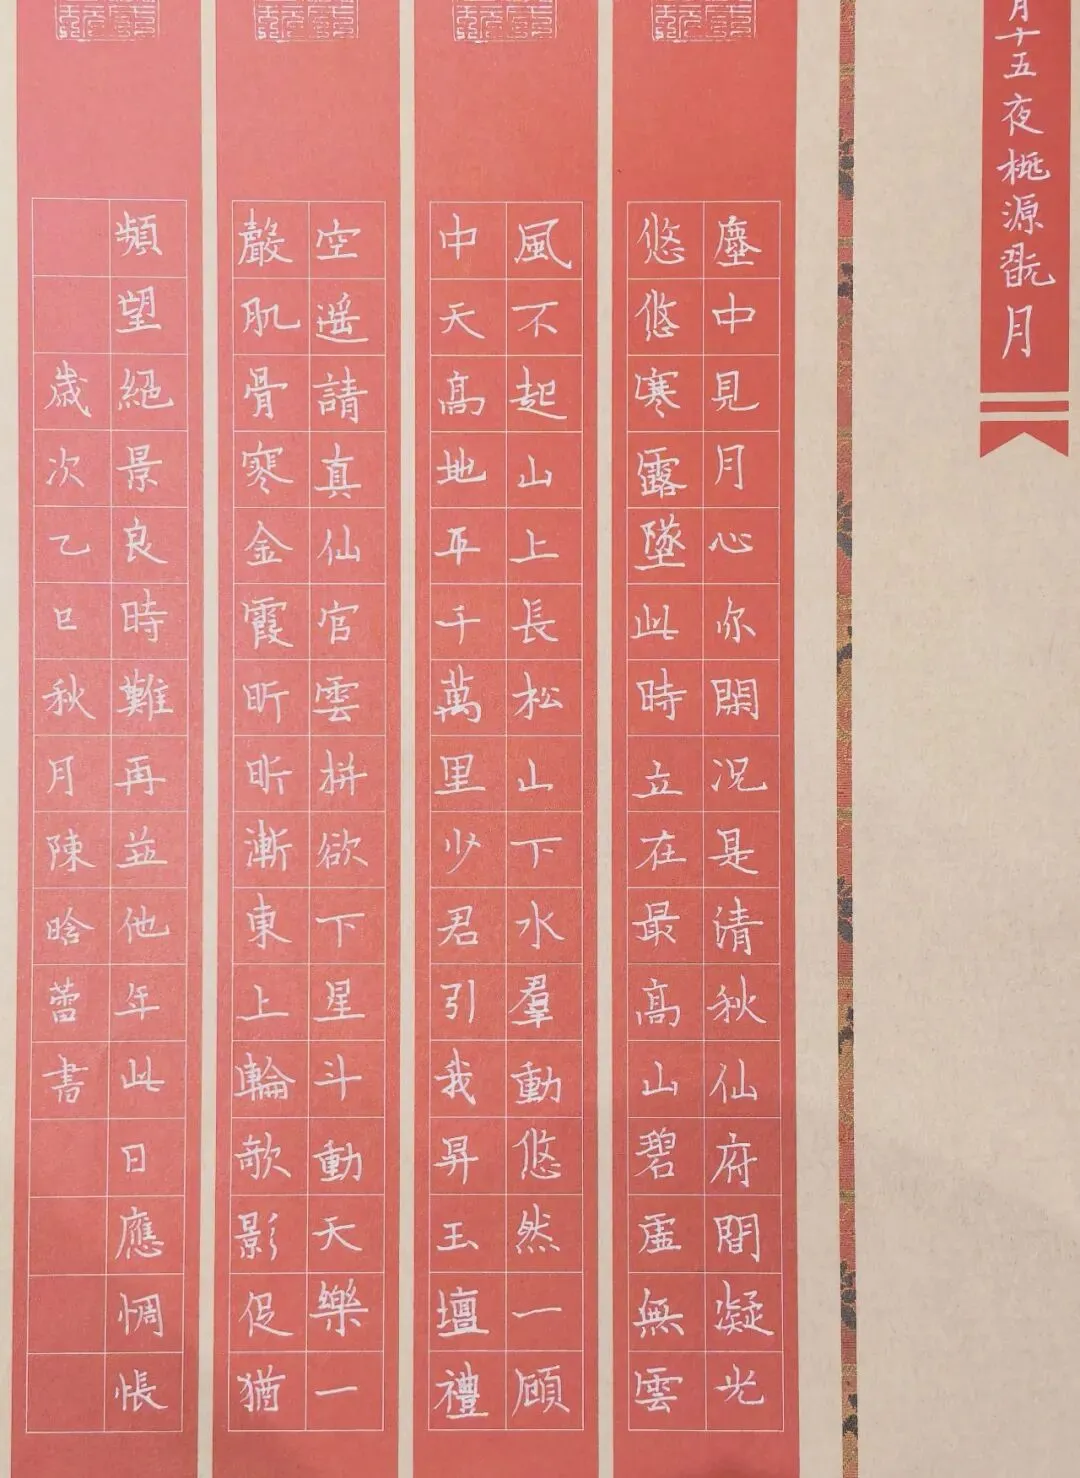 月十五夜桃源翫月
塵中見月心亦閑况是清秋仙府間凝光
悠悠寒露墜此時立在最高山碧虛無雲
風不起山上長松山下水羣動悠然一顧
中天高地平千萬里少君引我昇玉壇禮
空遥請真仙官雲軿欲下星斗動天樂一
聲肌骨寒金霞昕昕漸東上輪欹影促猶
頻望絕景良時難再並他年此日應惆悵
歲次乙巳秋月陳晗蕾書